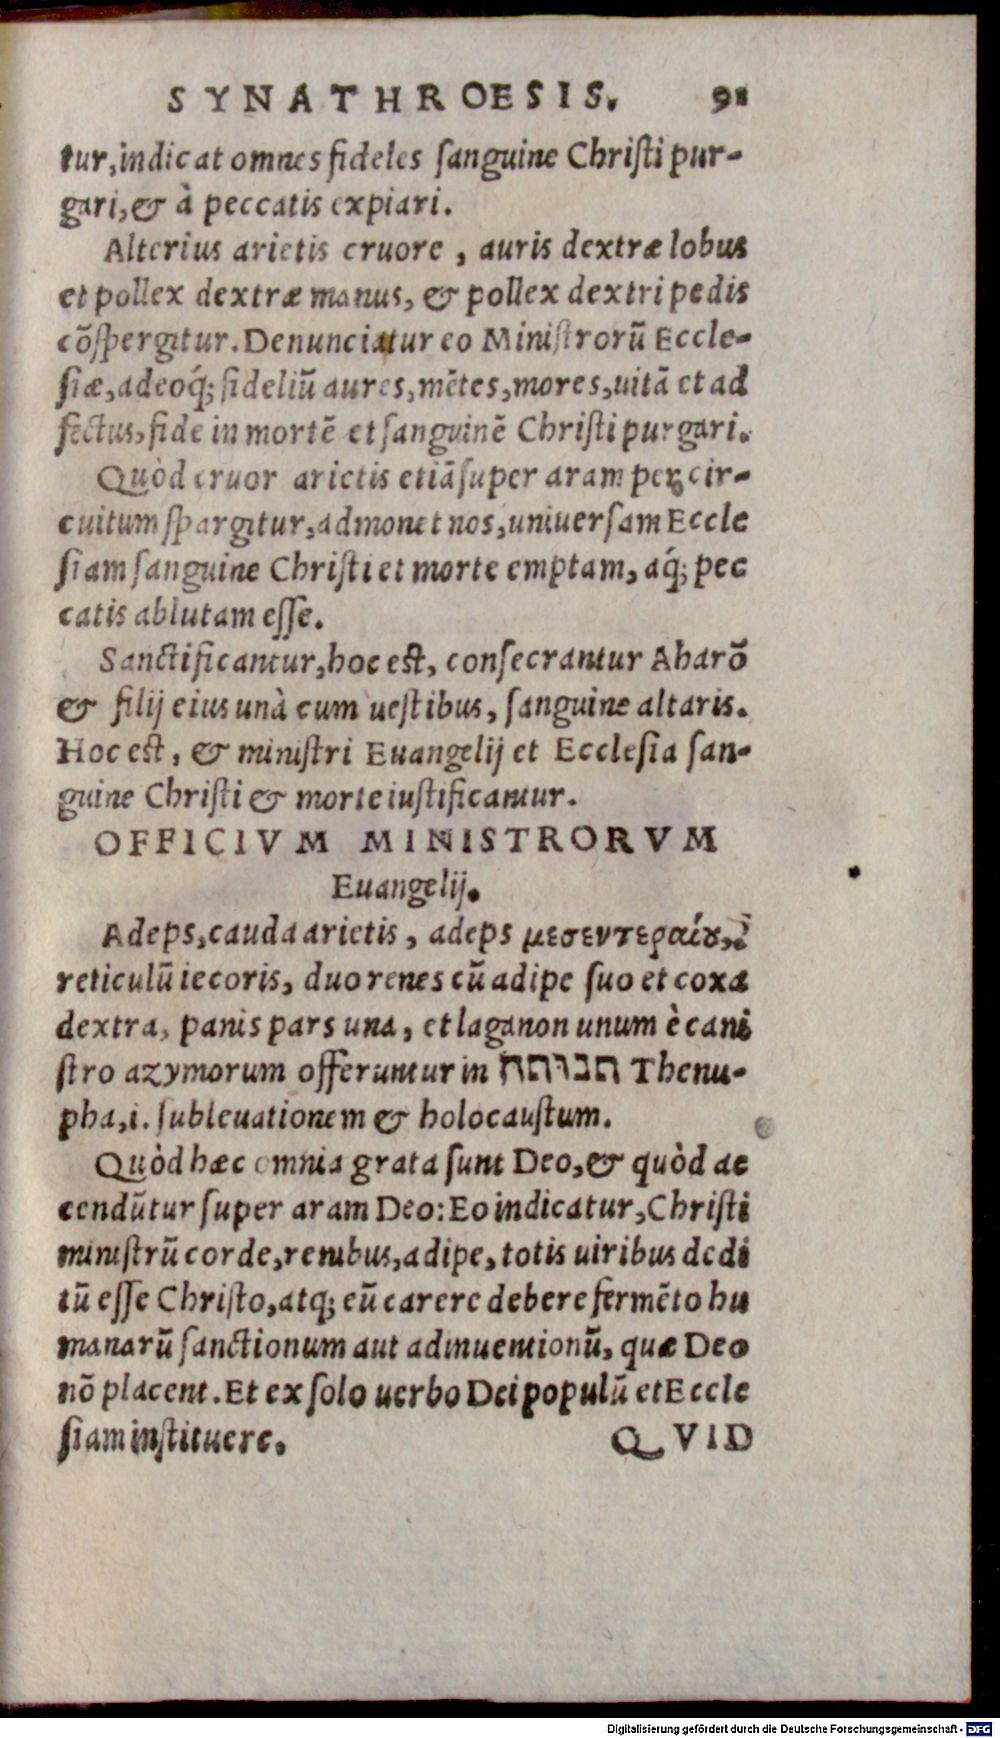 SYNATHROESIS. 91
tur, indicat omnes fideles sanguine Christi pur-
gari, & à peccatis expiari.
Alterius arietis cruore, auris dextræ lobus
et pollex dextræ manus, & pollex dextri pedis
cõspergitur. Denunciatur eo Ministrorũ Eccle-
siæ, adeoq́; fideliũ aures, mẽtes, mores, uitã et ad
fectus, fide in mortẽ et sanguinẽ Christi purgari.
Quòd cruor arietis etiã super aram per cir-
cuitum spargitur, admonet nos, uniuersam Eccle
siam sanguine Christi et morte emptam, aq́; pec
catis ablutam esse.
Sanctificantur, hoc est, consecrantur Aharõ
& filij eius unà cum uestibus, sanguine altaris.
Hoc est, & ministri Euangelij et Ecclesia san-
guine Christi & morte iustificantur.
OFFICIVM MINISTRORVM
Euangelij.
Adeps, cauda arietis, adeps μεσεντεραίου,
reticulũ iecoris, duo renes cũ adipe suo et coxa
dextra, panis pars una, et laganon unum è cani
stro azymorum offeruntur in תנופה Thenu-
pha, i. subleuationem & holocaustum.
Quòd hæc omnia grata sunt Deo, & quòd ac
cendũtur super aram Deo: Eo indicatur, Christi
ministrũ corde, renibus, adipe, totis uiribus dedi
tũ esse Christo, atq; eũ carere debere fermẽto hu
manarũ sanctionum aut adinuentionũ, quæ Deo
nõ placent. Et ex solo uerbo Dei populũ et Eccle
siam instituere. QVID
Digitalisierung gefördert durch die Deutsche Forschungsgemeinschaft - DFG